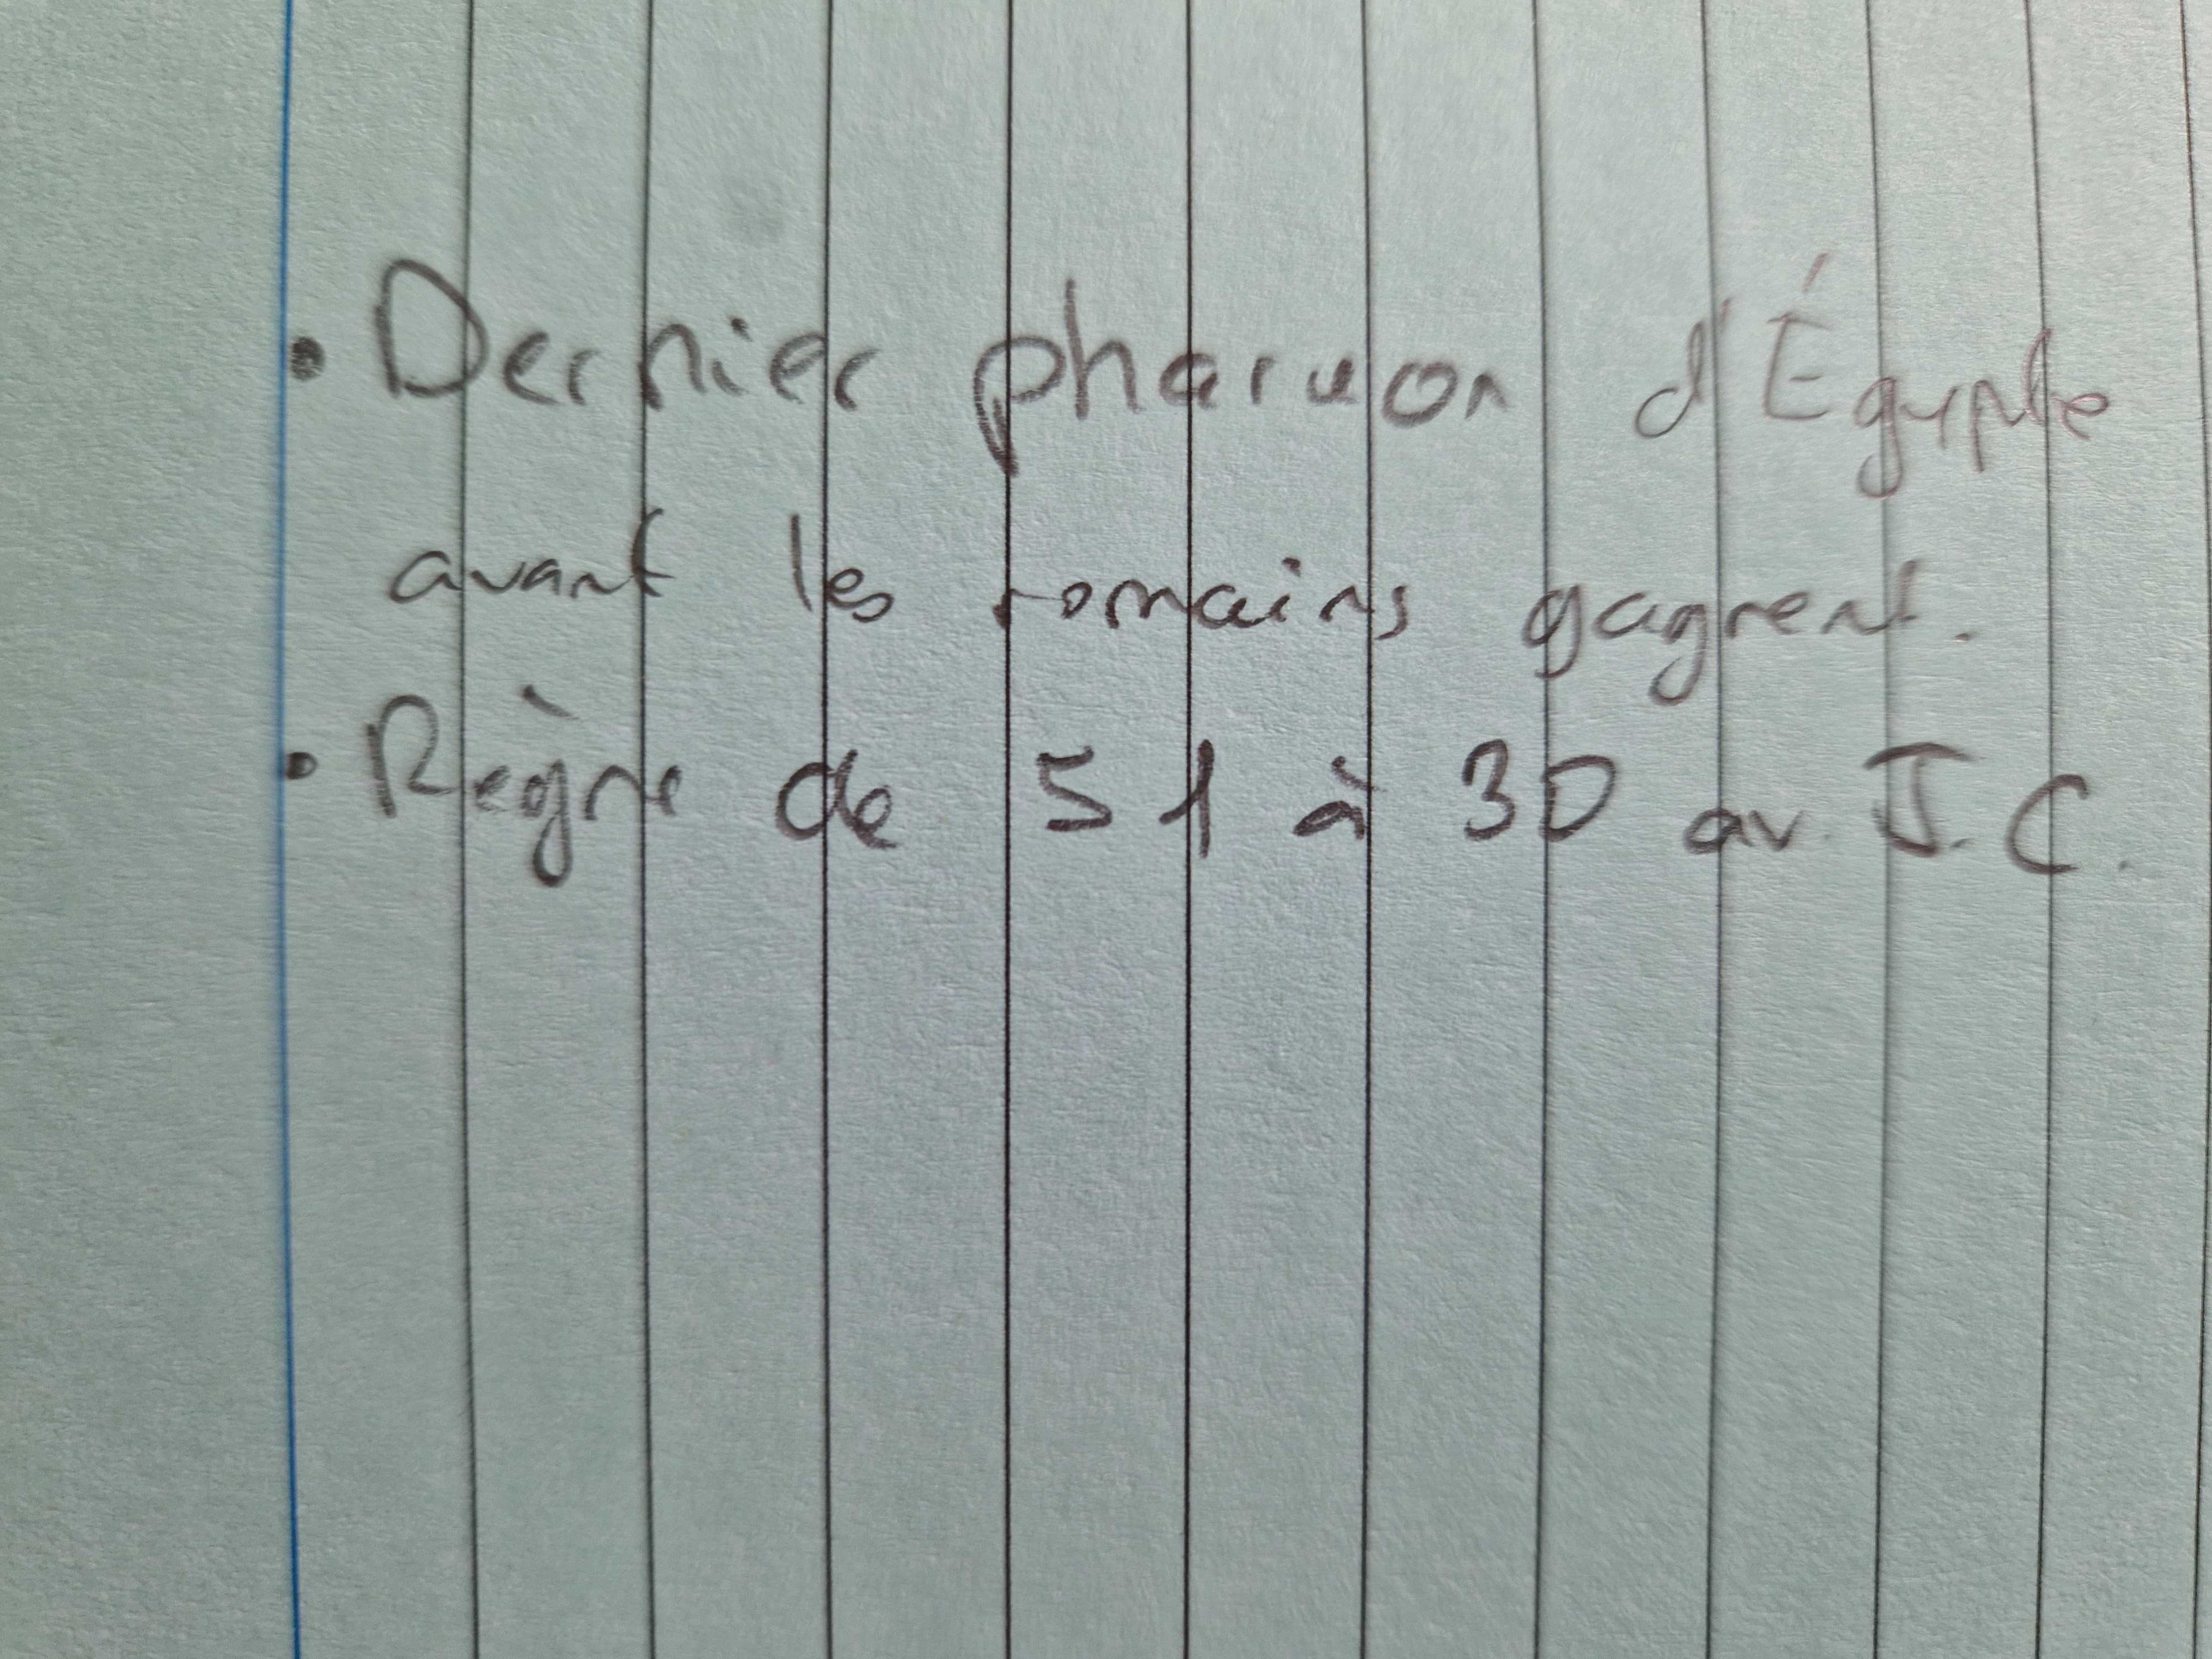 • Dernier pharaon d'Égypte
avant les romains gagnent.
• Règne de 51 à 30 av. J. C.